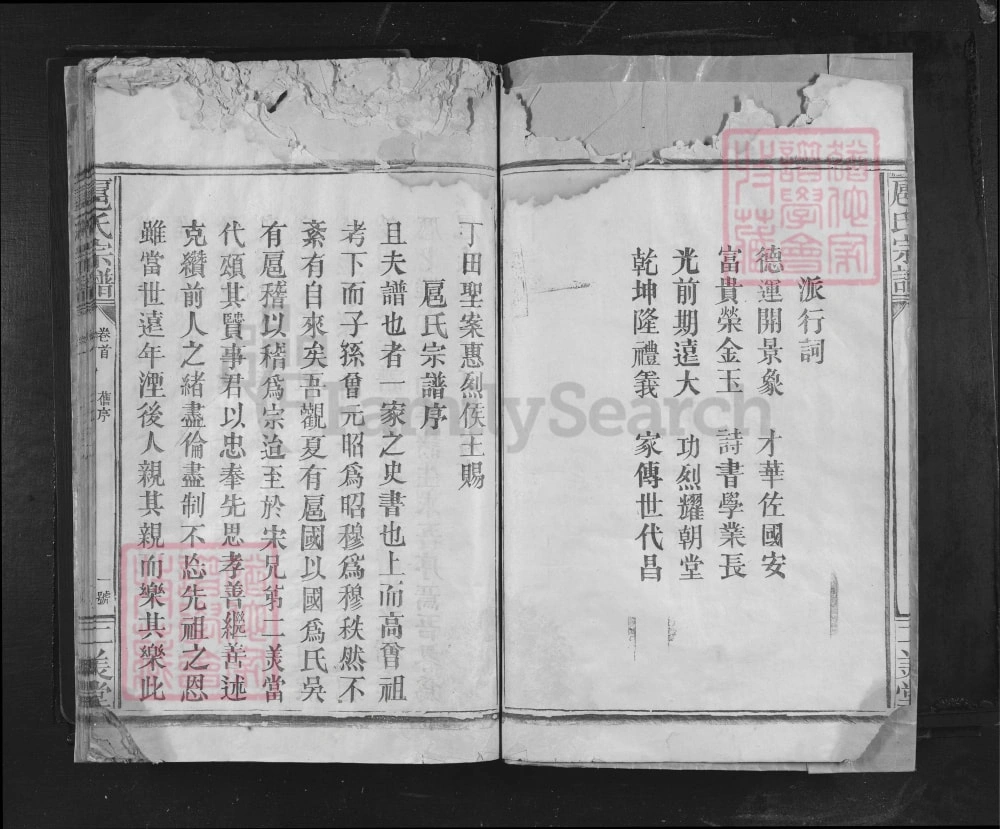 派行詞
德運開景象 才華佐國安
富貴榮金玉 詩書學業長
光前期遠大 功烈耀朝堂
乾坤隆禮義 家傳世代昌
扈氏宗譜
二美堂
丁田聖案惠烈侯王賜
扈氏宗譜序
且夫譜也者一家之史書也上而高曾祖
考下而子孫曾元昭爲昭穆爲穆秩然不
紊有自來矣吾觀夏有扈國以國爲氏吳
有扈稽以稽爲宗迨至於宋兄第二美當
代頌其賢事君以忠奉先思孝善繼善述
克纘前人之緒盡倫盡制不忘先祖之恩
雖當世遠年湮後人親其親而樂其樂此
扈氏宗譜
卷首 舊序
一號
二美堂
FamilySearch